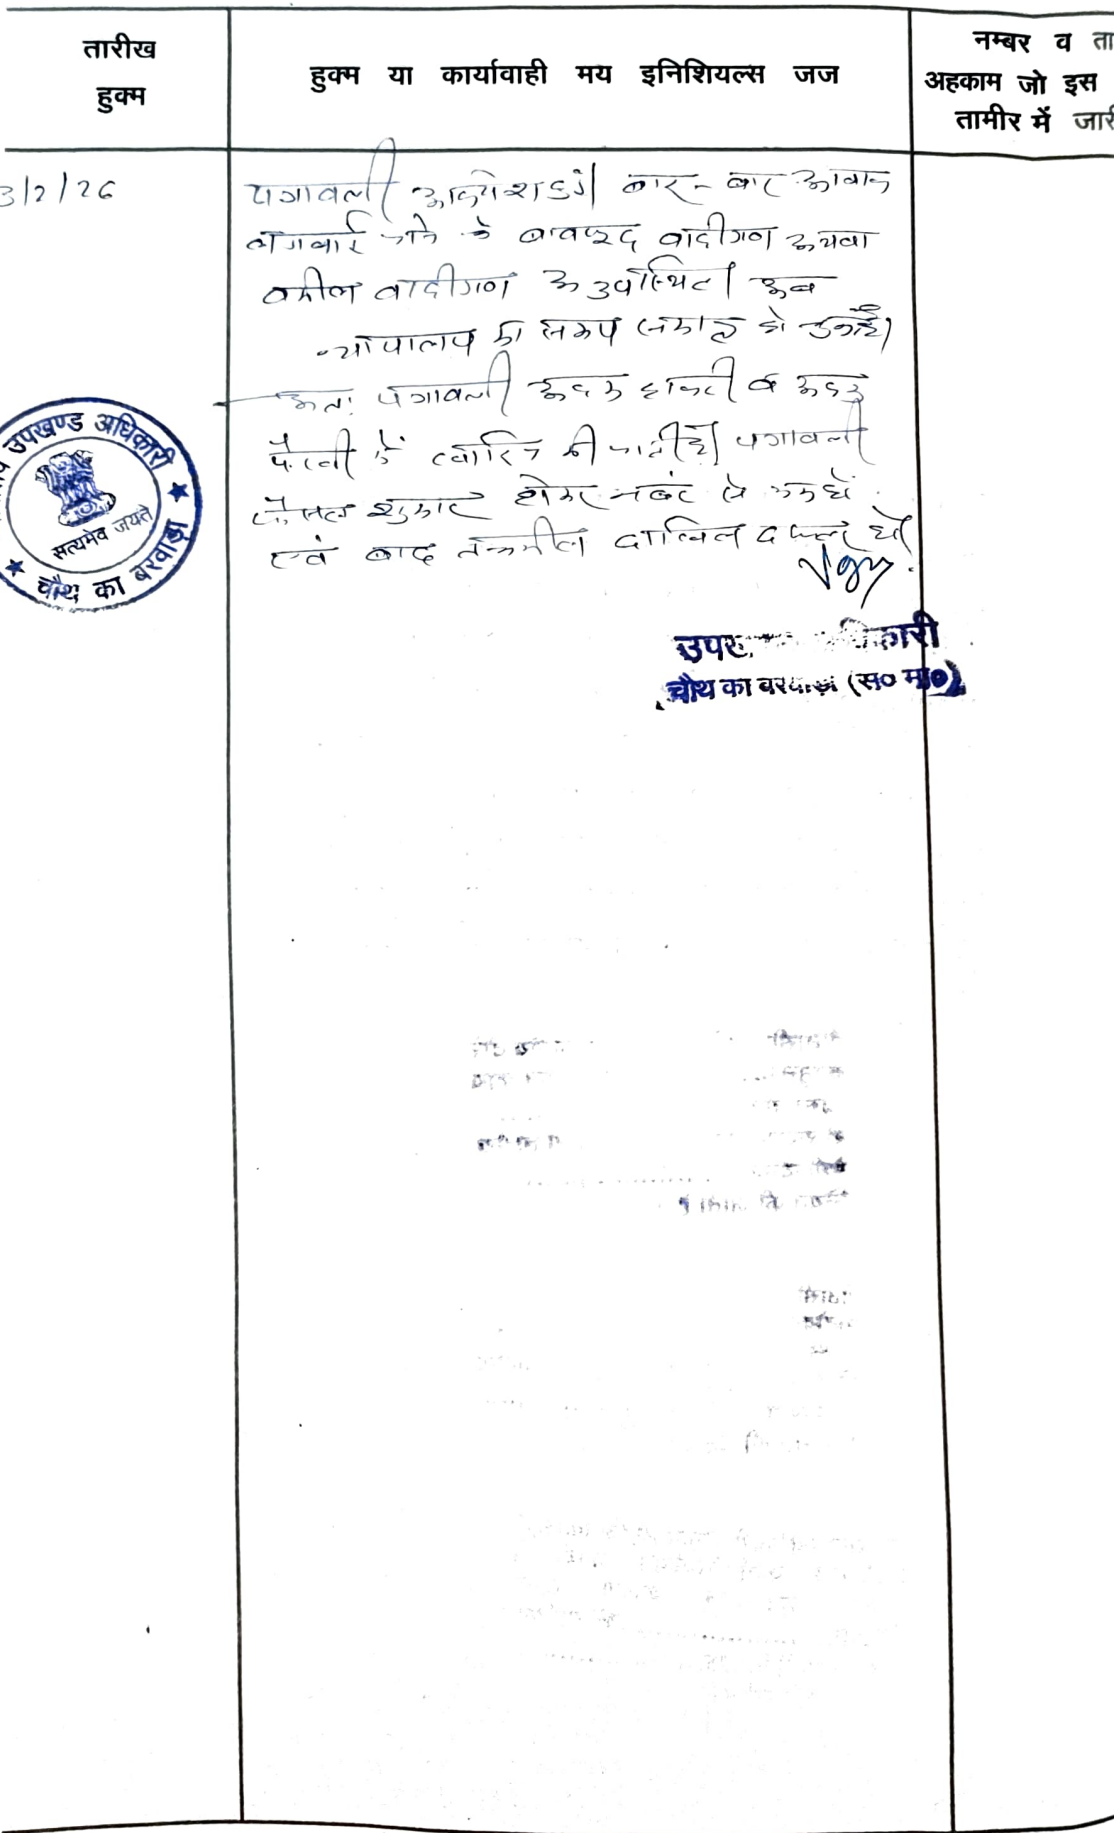 तारीख
हुक्म
हुक्म या कार्यावाही मय इनिशियल्स जज
नम्बर व ता
अहकाम जो इस
तामीर में जारी
3/2/26
पत्रावली आज पेश हुई। बार-बार आवाज
लगवाई जाने के बावजूद वादीगण अथवा
वकील वादीगण अनुपस्थित। अब
न्यायालय का समय समाप्त हो चुका है।
अतः पत्रावली अदम हाजरी व अदम
पैरवी में खारिज की जाती है। पत्रावली
फैसल शुमार होकर नम्बर से कम हो
एवं बाद तकमील दाखिल दफ्तर हो
उपखण्ड अधिकारी
सत्यमेव जयते
चौथ का बरवाड़ा
चौथ का बरवाड़ा (स० मा०)